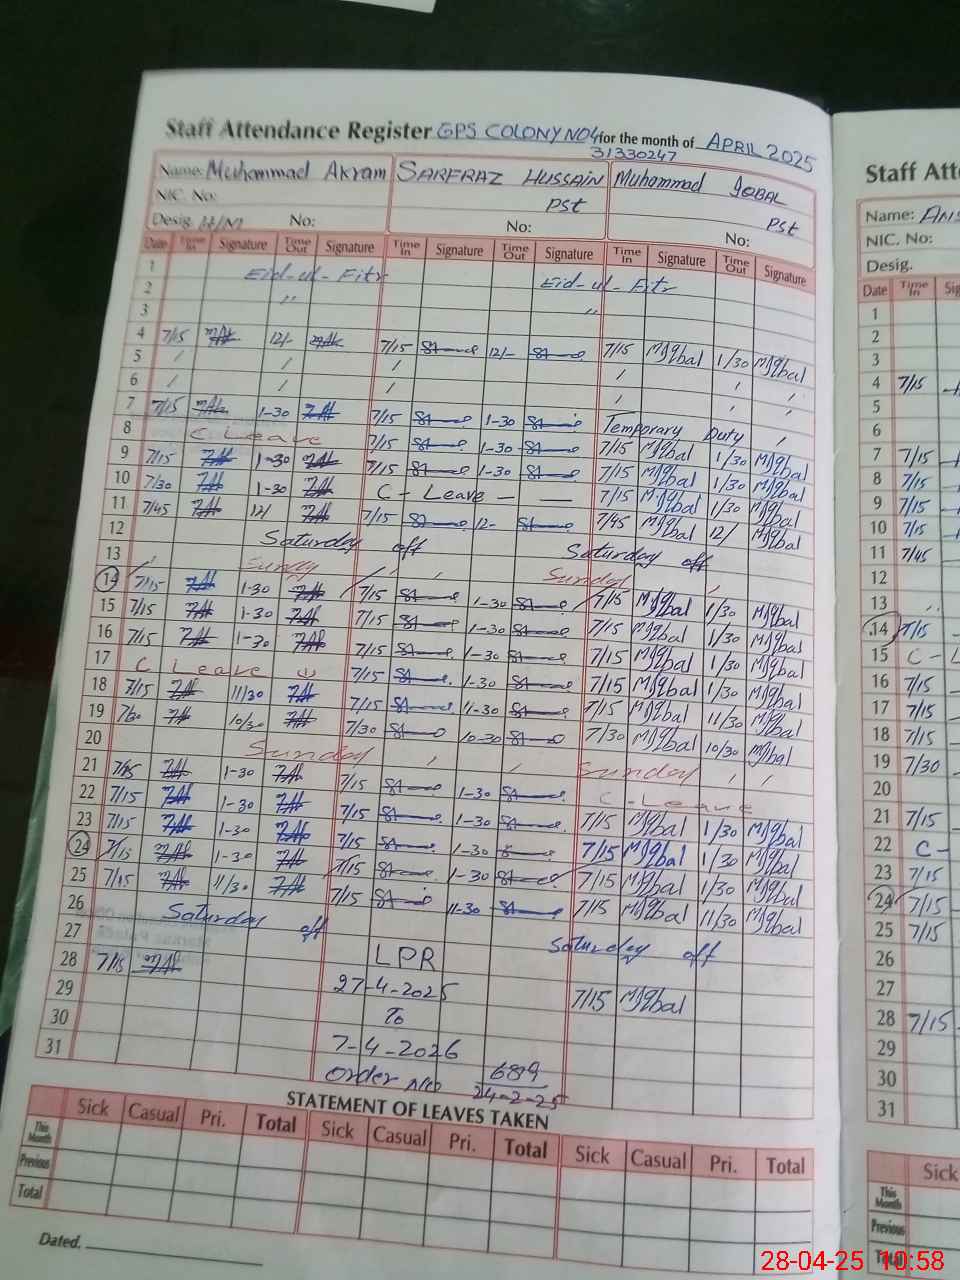 Staff Attendance Register GPS COLONY NO4 for the month of APRIL 2025
31330247
Name: Muhammad Akram SARFRAZ HUSSAIN Muhammad IQBAL
NIC. No: PST PST
Desig. H/M No: No: No:
Date Time In Signature Time Out Signature Time In Signature Time Out Signature Time In Signature Time Out Signature
1 Eid-ul-Fitr Eid-ul-Fitr
2 " "
3
4 7/15 12/- 7/15 12/- 7/15 MIqbal 1/30 MIqbal
5
6
7 7/15 1-30 7/15 1-30 Temporary Duty
8 C Leave 7/15 1-30 7/15 MIqbal 1/30 MIqbal
9 7/15 1-30 7/15 1-30 7/15 MIqbal 1/30 MIqbal
10 7/30 1-30 C-Leave - - 7/15 MIqbal 1/30 MIqbal
11 7/45 12/ 7/15 12- 7/45 MIqbal 12/ MIqbal
12 Saturday off Saturday off
13 Sunday
14 7/15 1-30 7/15 1-30 7/15 MIqbal 1/30 MIqbal
15 7/15 1-30 7/15 1-30 7/15 MIqbal 1/30 MIqbal
16 7/15 1-30 7/15 1-30 7/15 MIqbal 1/30 MIqbal
17 C Leave 7/15 1-30 7/15 MIqbal 1/30 MIqbal
18 7/15 11/30 7/15 11-30 7/15 MIqbal 11/30 MIqbal
19 7/30 10/30 7/30 10-30 7/30 MIqbal 10/30 MIqbal
20 Sunday Sunday
21 7/15 1-30 7/15 1-30 C-Leave
22 7/15 1-30 7/15 1-30 7/15 MIqbal 1/30 MIqbal
23 7/15 1-30 7/15 1-30 7/15 MIqbal 1/30 MIqbal
24 7/15 1-30 7/15 1-30 7/15 MIqbal 1/30 MIqbal
25 7/15 11/30 7/15 11-30 7/15 MIqbal 11/30 MIqbal
26 Saturday off Saturday off
27 LPR
28 7/15 27-4-2025 7/15 MIqbal
29 To
30 7-4-2026
31 Order No 689
24-2-25
STATEMENT OF LEAVES TAKEN
Sick Casual Pri. Total Sick Casual Pri. Total Sick Casual Pri. Total
This Month
Previous
Total
Dated.
Staff Att
Name:
NIC. No:
Desig.
Date Time In
1
2
3
4 7/15
5
6
7 7/15
8 7/15
9 7/15
10 7/15
11 7/45
12
13
14 7/15
15 C-L
16 7/15
17 7/15
18 7/15
19 7/30
20
21 7/15
22 C-
23 7/15
24 7/15
25 7/15
26
27
28 7/15
29
30
31
Sick
This Month
Previous
Total
28-04-25 10:58